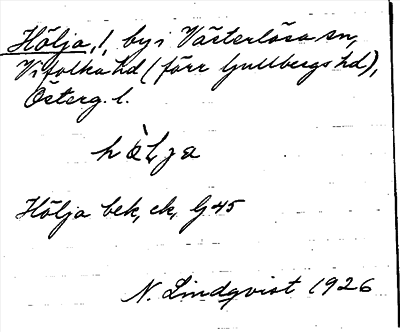 Hölja, l, by i Västerlösa sn,
Vifolka hd (förr Gullbergs hd),
Österg. l.
hòlja
Hölja bek, ek, G45
N. Lindqvist 1926